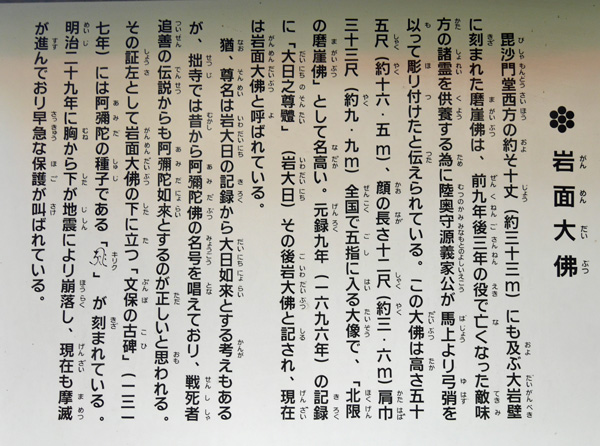 岩面大佛
毘沙門堂西方の約そ十丈（約三十三ｍ）にも及ぶ大岩壁
に刻まれた磨崖佛は、前九年後三年の役で亡くなった敵味
方の諸霊を供養する為に陸奥守源義家公が馬上より弓弭を
以って彫り付けたと伝えられている。この大佛は高さ五十
五尺（約十六・五ｍ）、顔の長さ十二尺（約三・六ｍ）肩巾
三十三尺（約九・九ｍ）全国で五指に入る大像で、「北限
の磨崖佛」として名高い。元録九年（一六九六年）の記録
に「大日之尊體」（岩大日）その後岩大佛と記され、現在
は岩面大佛と呼ばれている。
猶、尊名は岩大日の記録から大日如来とする考えもある
が、拙寺では昔から阿彌陀佛の名号を唱えており、戦死者
追善の伝説からも阿彌陀如来とするのが正しいと思われる。
その証左として岩面大佛の下に立つ「文保の古碑」（一三一
七年）には阿彌陀の種子である「　」が刻まれている。
明治二十九年に胸から下が地震により崩落し、現在も摩滅
が進んでおり早急な保護が叫ばれている。